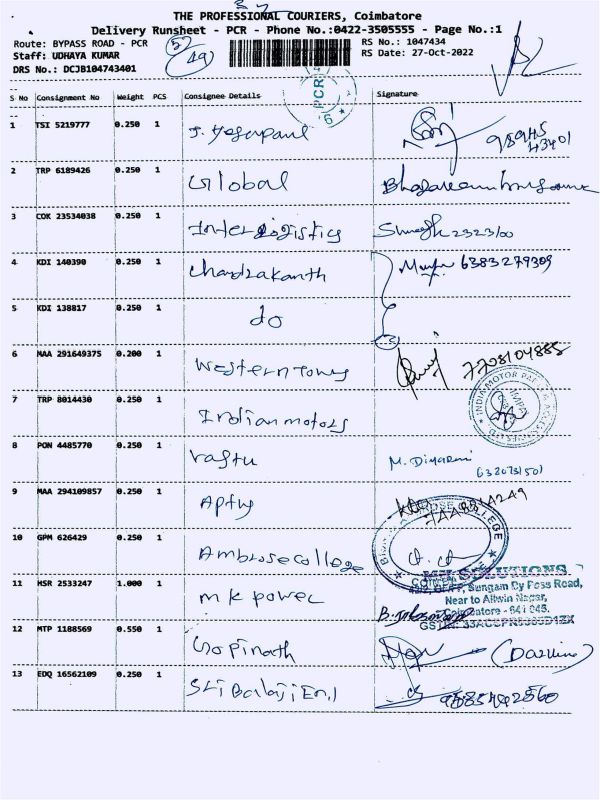 THE PROFESSIONAL COURIERS, Coimbatore
Delivery Runsheet - PCR - Phone No.:0422-3505555 - Page No.:1
Route: BYPASS ROAD - PCR
RS No.: 1047434
Staff: UDHAYA KUMAR
RS Date: 27-Oct-2022
DRS No.: DCJB104743401
52
49
PCR
S No Consignment No Weight PCS Consignee Details Signature
1 TSI 5219777 0.250 1
98945
43401
2 TRP 6189426 0.250 1 Global
3 COK 23534038 0.250 1 Inter Logistics
4 KDI 140390 0.250 1 Chandrakanth 6383279309
5 KDI 138817 0.250 1 do
6 MAA 291649375 0.200 1 Western Towy 7708104885
7 TRP 8014430 0.250 1 Indian motors
INDIA MOTOR PARTS & ACCESSORIES LTD
8 PON 4485770 0.250 1 Vastu
9 MAA 294109857 0.250 1
10 GPM 626429 0.250 1 Ambrose college
11 HSR 2533247 1.000 1 mk power
SOLUTIONS
Sungam By Pass Road,
Near to Allwin Nagar,
Coimbatore - 641 045.
12 MTP 1188569 0.550 1 Gopinath
13 EDQ 16562109 0.250 1 Sri Balaji En.